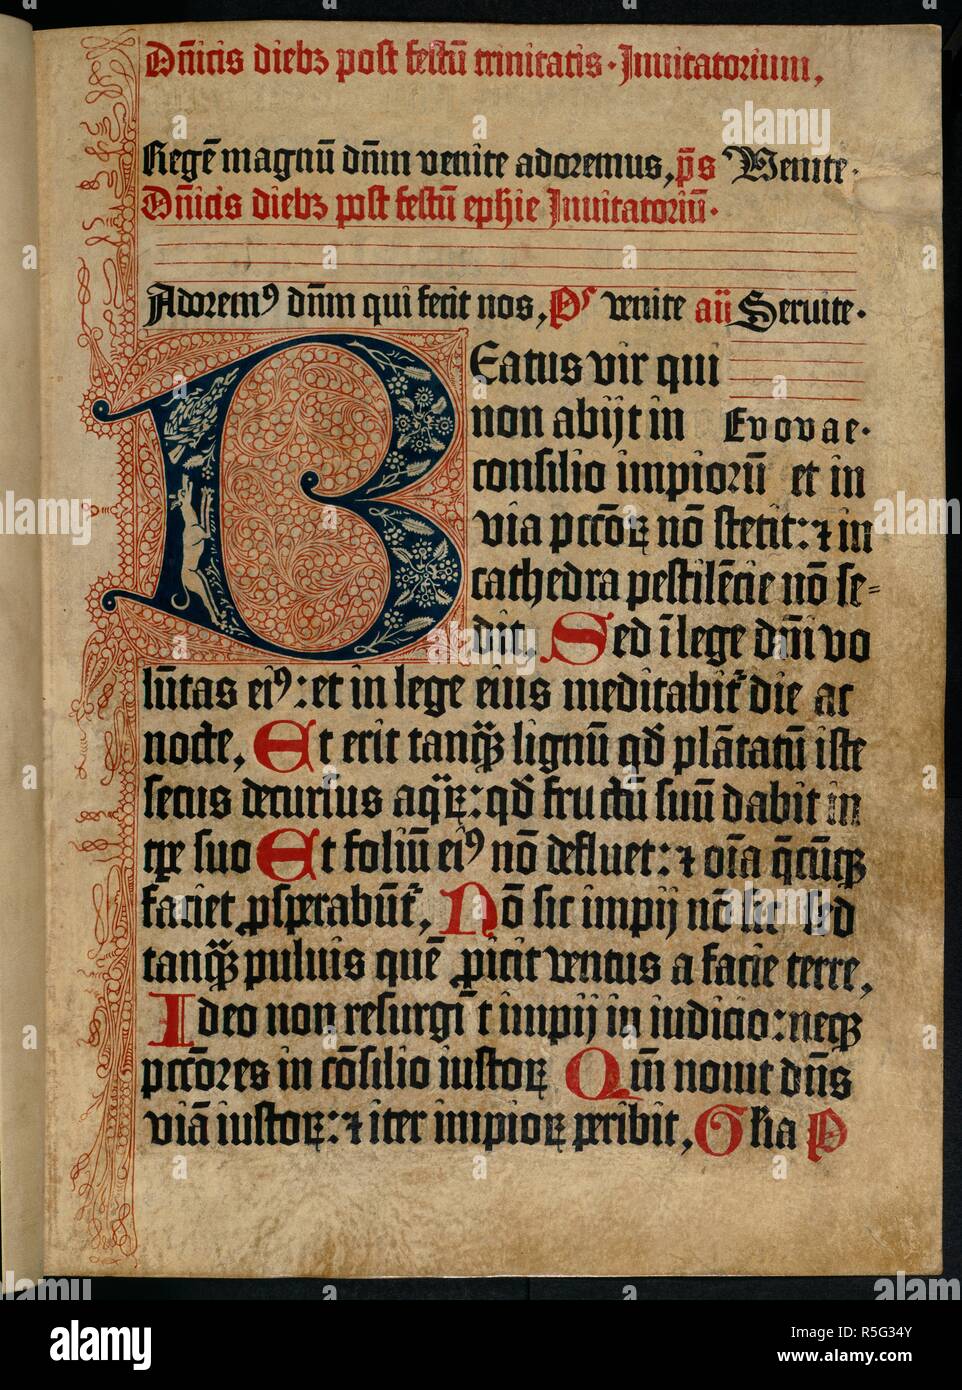 Dn̄icis dieb₃ post festū trinitatis · Inuitatorium,
Regē magnū dn̄m venite adoremus, p̄s Venite ·
Dn̄icis dieb₃ post festū ephie Inuitatoriū ·
Adorem⁹ dn̄m qui fecit nos, Ps venite aij Seruite ·
BEatus vir qui
non abijt in Evovae ·
consilio impiorū et in
via pccōꝝ nō stetit: ⁊ in
cathedra pestilēcie nō se-
dit, Sed ī lege dn̄i vo
lūtas ei⁹: et in lege eius meditabit̄ die ac
nocte, Et erit tanꝙ̄ lignū qd̄ plātatū iste
secus decursus aqꝝ: qd̄ fructū suū dabit in
tꝑe suo Et foliū ei⁹ nō defluet: ⁊ oīa q̄cūqꝫ
faciet ꝓsperabūt̄, Nō sic impij nō sic sed
tanꝙ̄ puluis quē ꝓicit ventus a facie terre,
Ideo non resurgūt impij in iudicio: neqꝫ
pccōres in cōsilio iustoꝝ Qm̄ nouit dn̄s
viā iustoꝝ: ⁊ iter impioꝝ peribit, Glia P
alamy
Image ID: R5G34Y
www.alamy.com